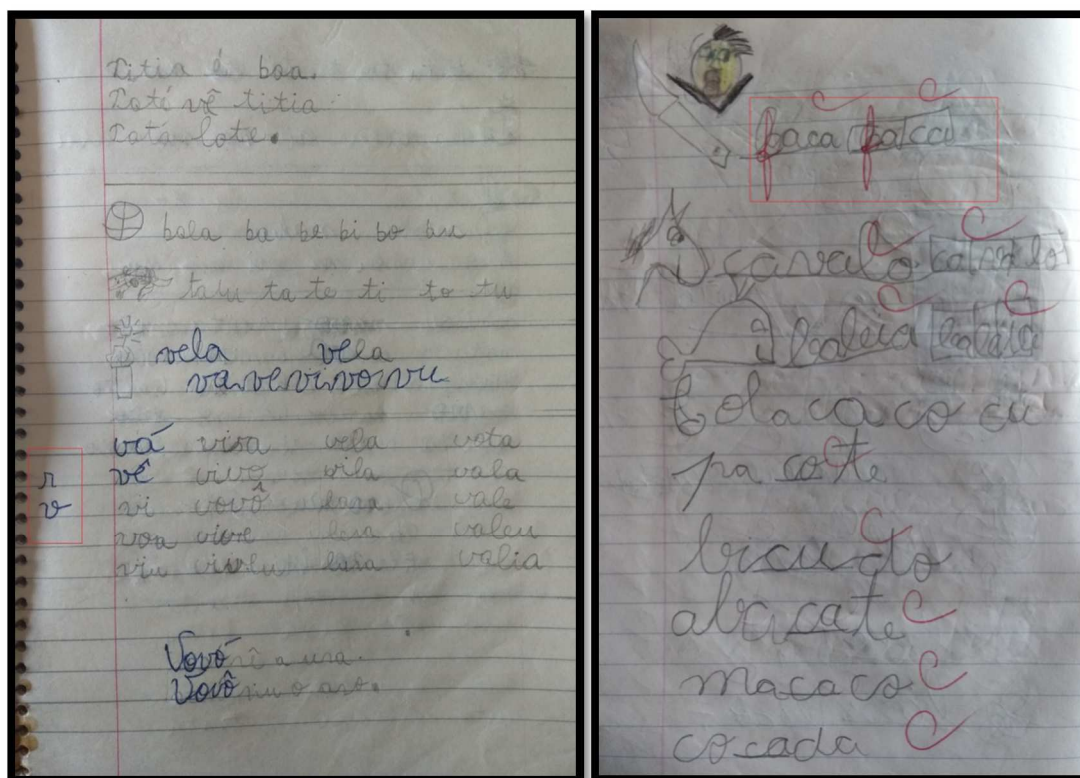 Titia é boa.
Tatá vê titia
Tatá late.
bola ba be bi bo bu
tatu ta te ti to tu
vela vela
va ve vi vo vu
vá visa vela vota
vê vivo vila vala
vi vovô vale
voa vive leva valeu
viu viveu lava valia
r
v
Vovó a uva.
Vovô viu o ovo.
faca faca
cavalo cavalo
baleia
bolacacocu
pacote
bicudo
abacate
macaco
cocada